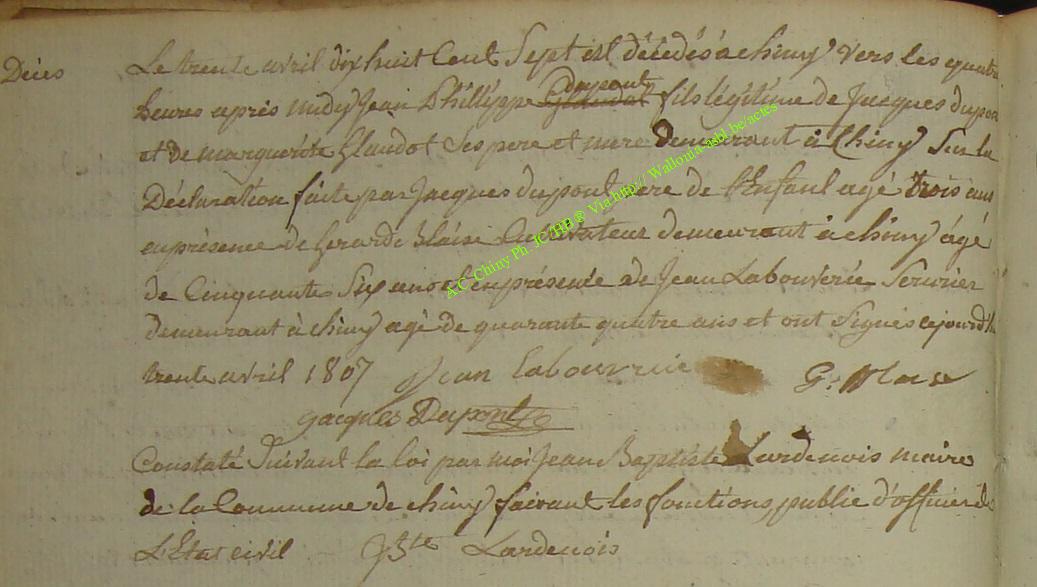 Décès
Le trente avril dix huit Cent Sept est décédés à chiny vers les quatre
heures après midy Jean Phillippe Dupont fils légitime de Jacques dupon
et de marguerite Glaudot Ses pere et mere demeurant à Chiny Sur la
Déclaration faite par Jacques dupont pere de l'Enfant agé trois ans
en présence de Gerarde Blaise Cultivateur demeurant à chiny âgé
de Cinquante Six ans et en présence de Jean Labouverie Serurier
demeurant à chiny agé de quarante quatre ans et ont Signés cejourd'hu
trente avril 1807 Jean labouverie G: Blaise
Jacques Dupont
Constaté Suivant la loi par moi Jean Baptiste Lardenois maire
de la Commune de chiny faisant les fonctions public d'officier de
L'Etat civil JBte Lardenois
A.C Chiny Ph. JC/HB ® Via http:// Wallonia-asbl.be/actes